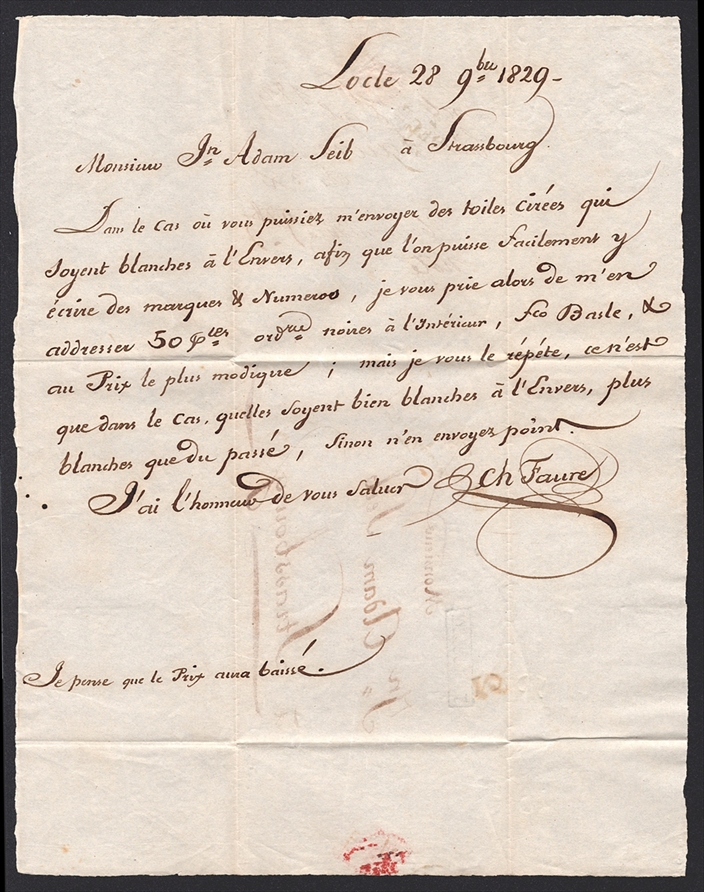 Locle 28 9bre 1829-
Monsieur Jn Adam Seib à Strassbourg.
Dans le cas où vous puissiez m'envoyer des toiles cirées qui
soyent blanches à l'Envers, afin que l'on puisse facilement y
écrire des marques & Numeros, je vous prie alors de m'en
addresser 50 Ples ordre noires à l'Intérieur, fco Basle, &
au Prix le plus modique ; mais je vous le répéte, ce n'est
que dans le cas, quelles soyent bien blanches à l'Envers, plus
blanches que du passé, Sinon n'en envoyez point.
J'ai l'honneur de vous saluer Ch Faure
Je pense que le Prix aura baissé.